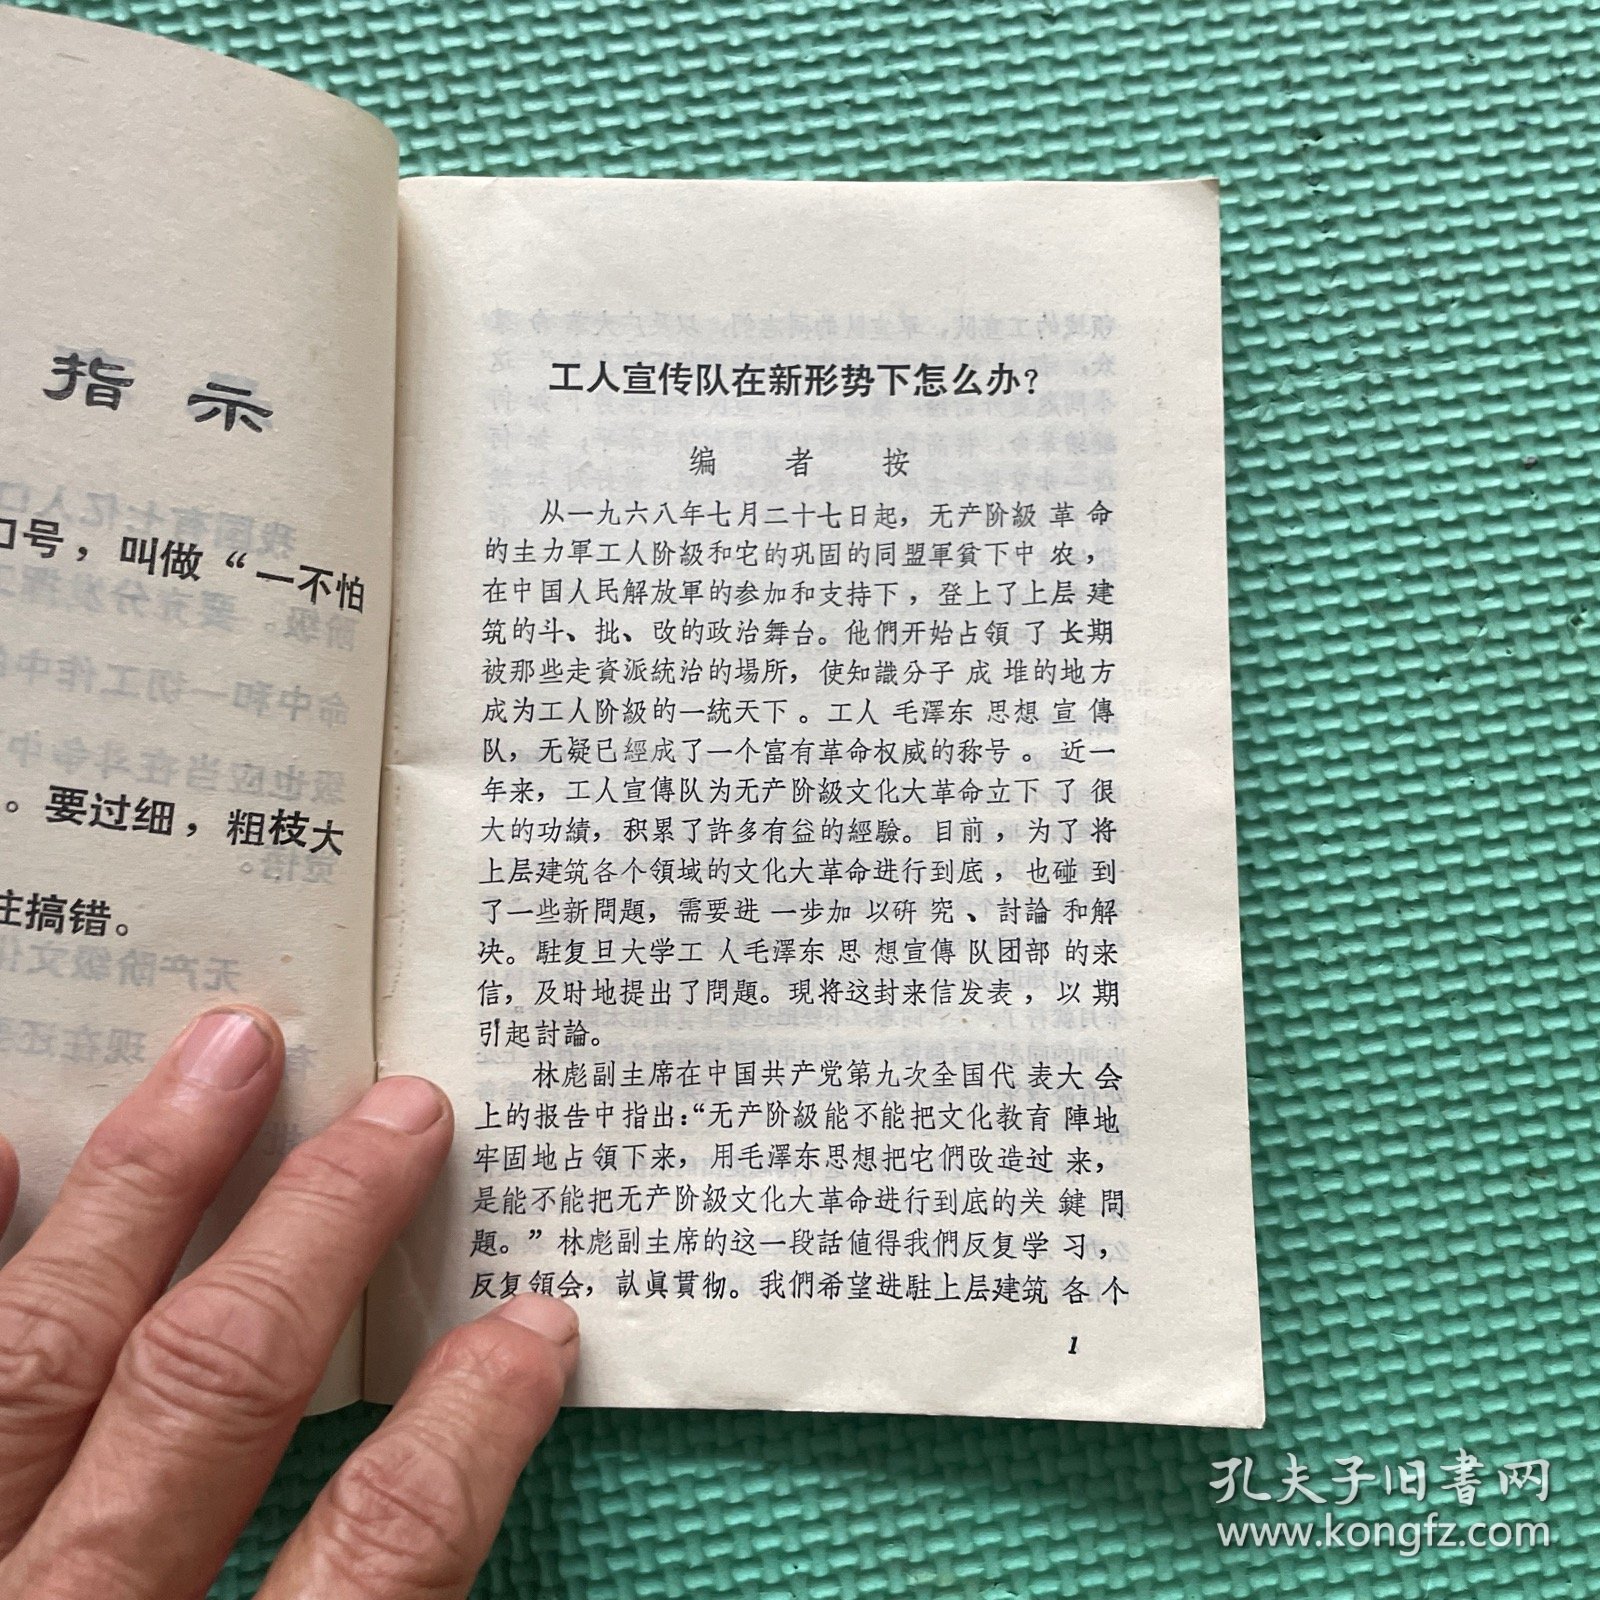 指示
口号，叫做“一不怕
。要过细，粗枝大
往搞错。
工人宣传队在新形势下怎么办？
编者按
从一九六八年七月二十七日起，无产阶級革命
的主力軍工人阶級和它的巩固的同盟軍貧下中农，
在中国人民解放軍的参加和支持下，登上了上层建
筑的斗、批、改的政治舞台。他們开始占領了长期
被那些走資派統治的場所，使知識分子成堆的地方
成为工人阶級的一統天下。工人毛澤东思想宣傳
队，无疑已經成了一个富有革命权威的称号。近一
年来，工人宣傳队为无产阶級文化大革命立下了很
大的功績，积累了許多有益的經驗。目前，为了将
上层建筑各个領域的文化大革命进行到底，也碰到
了一些新問題，需要进一步加以研究、討論和解
决。駐复旦大学工人毛澤东思想宣傳队团部的来
信，及时地提出了問題。現将这封来信发表，以期
引起討論。
林彪副主席在中国共产党第九次全国代表大会
上的报告中指出：“无产阶級能不能把文化教育陣地
牢固地占領下来，用毛澤东思想把它們改造过来，
是能不能把无产阶級文化大革命进行到底的关鍵問
題。”林彪副主席的这一段話値得我們反复学习，
反复領会，訙眞貫彻。我們希望进駐上层建筑各个
1
孔夫子旧書网
www.kongfz.com